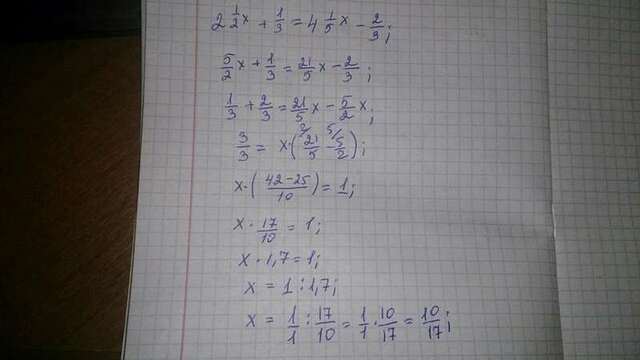 2 1/2 x + 1/3 = 4 1/5 x - 2/3;
5/2 x + 1/3 = 21/5 x - 2/3;
1/3 + 2/3 = 21/5 x - 5/2 x;
3/3 = x · (21/5 2/ - 5/2 5/);
x · (42-25/10) = 1;
x · 17/10 = 1;
x · 1,7 = 1;
x = 1 : 1,7;
x = 1/1 : 17/10 = 1/1 · 10/17 = 10/17;